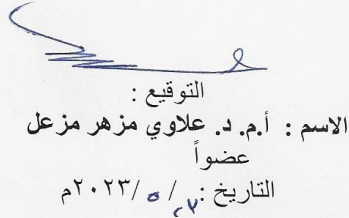 التوقيع :
الاسم : أ.م. د. علاوي مزهر مزعل
عضواً
التاريخ : ٢٧/ ٥ /٢٠٢٣م